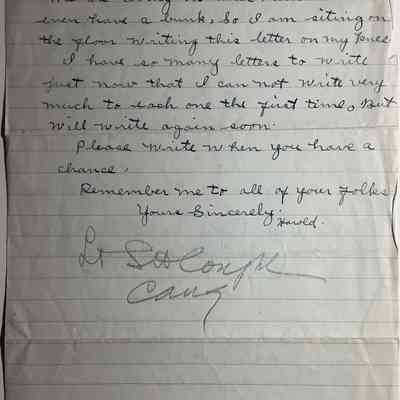 even have a bunk, So I am siting on
the floor writing this letter on my knee
I have so many letters to write
just now that I can not write very
much to each one the first time, But
will write again soon.
Please write when you have a
chance,
Remember me to all of your folks
Yours Sincerely,
Harold.
Lt